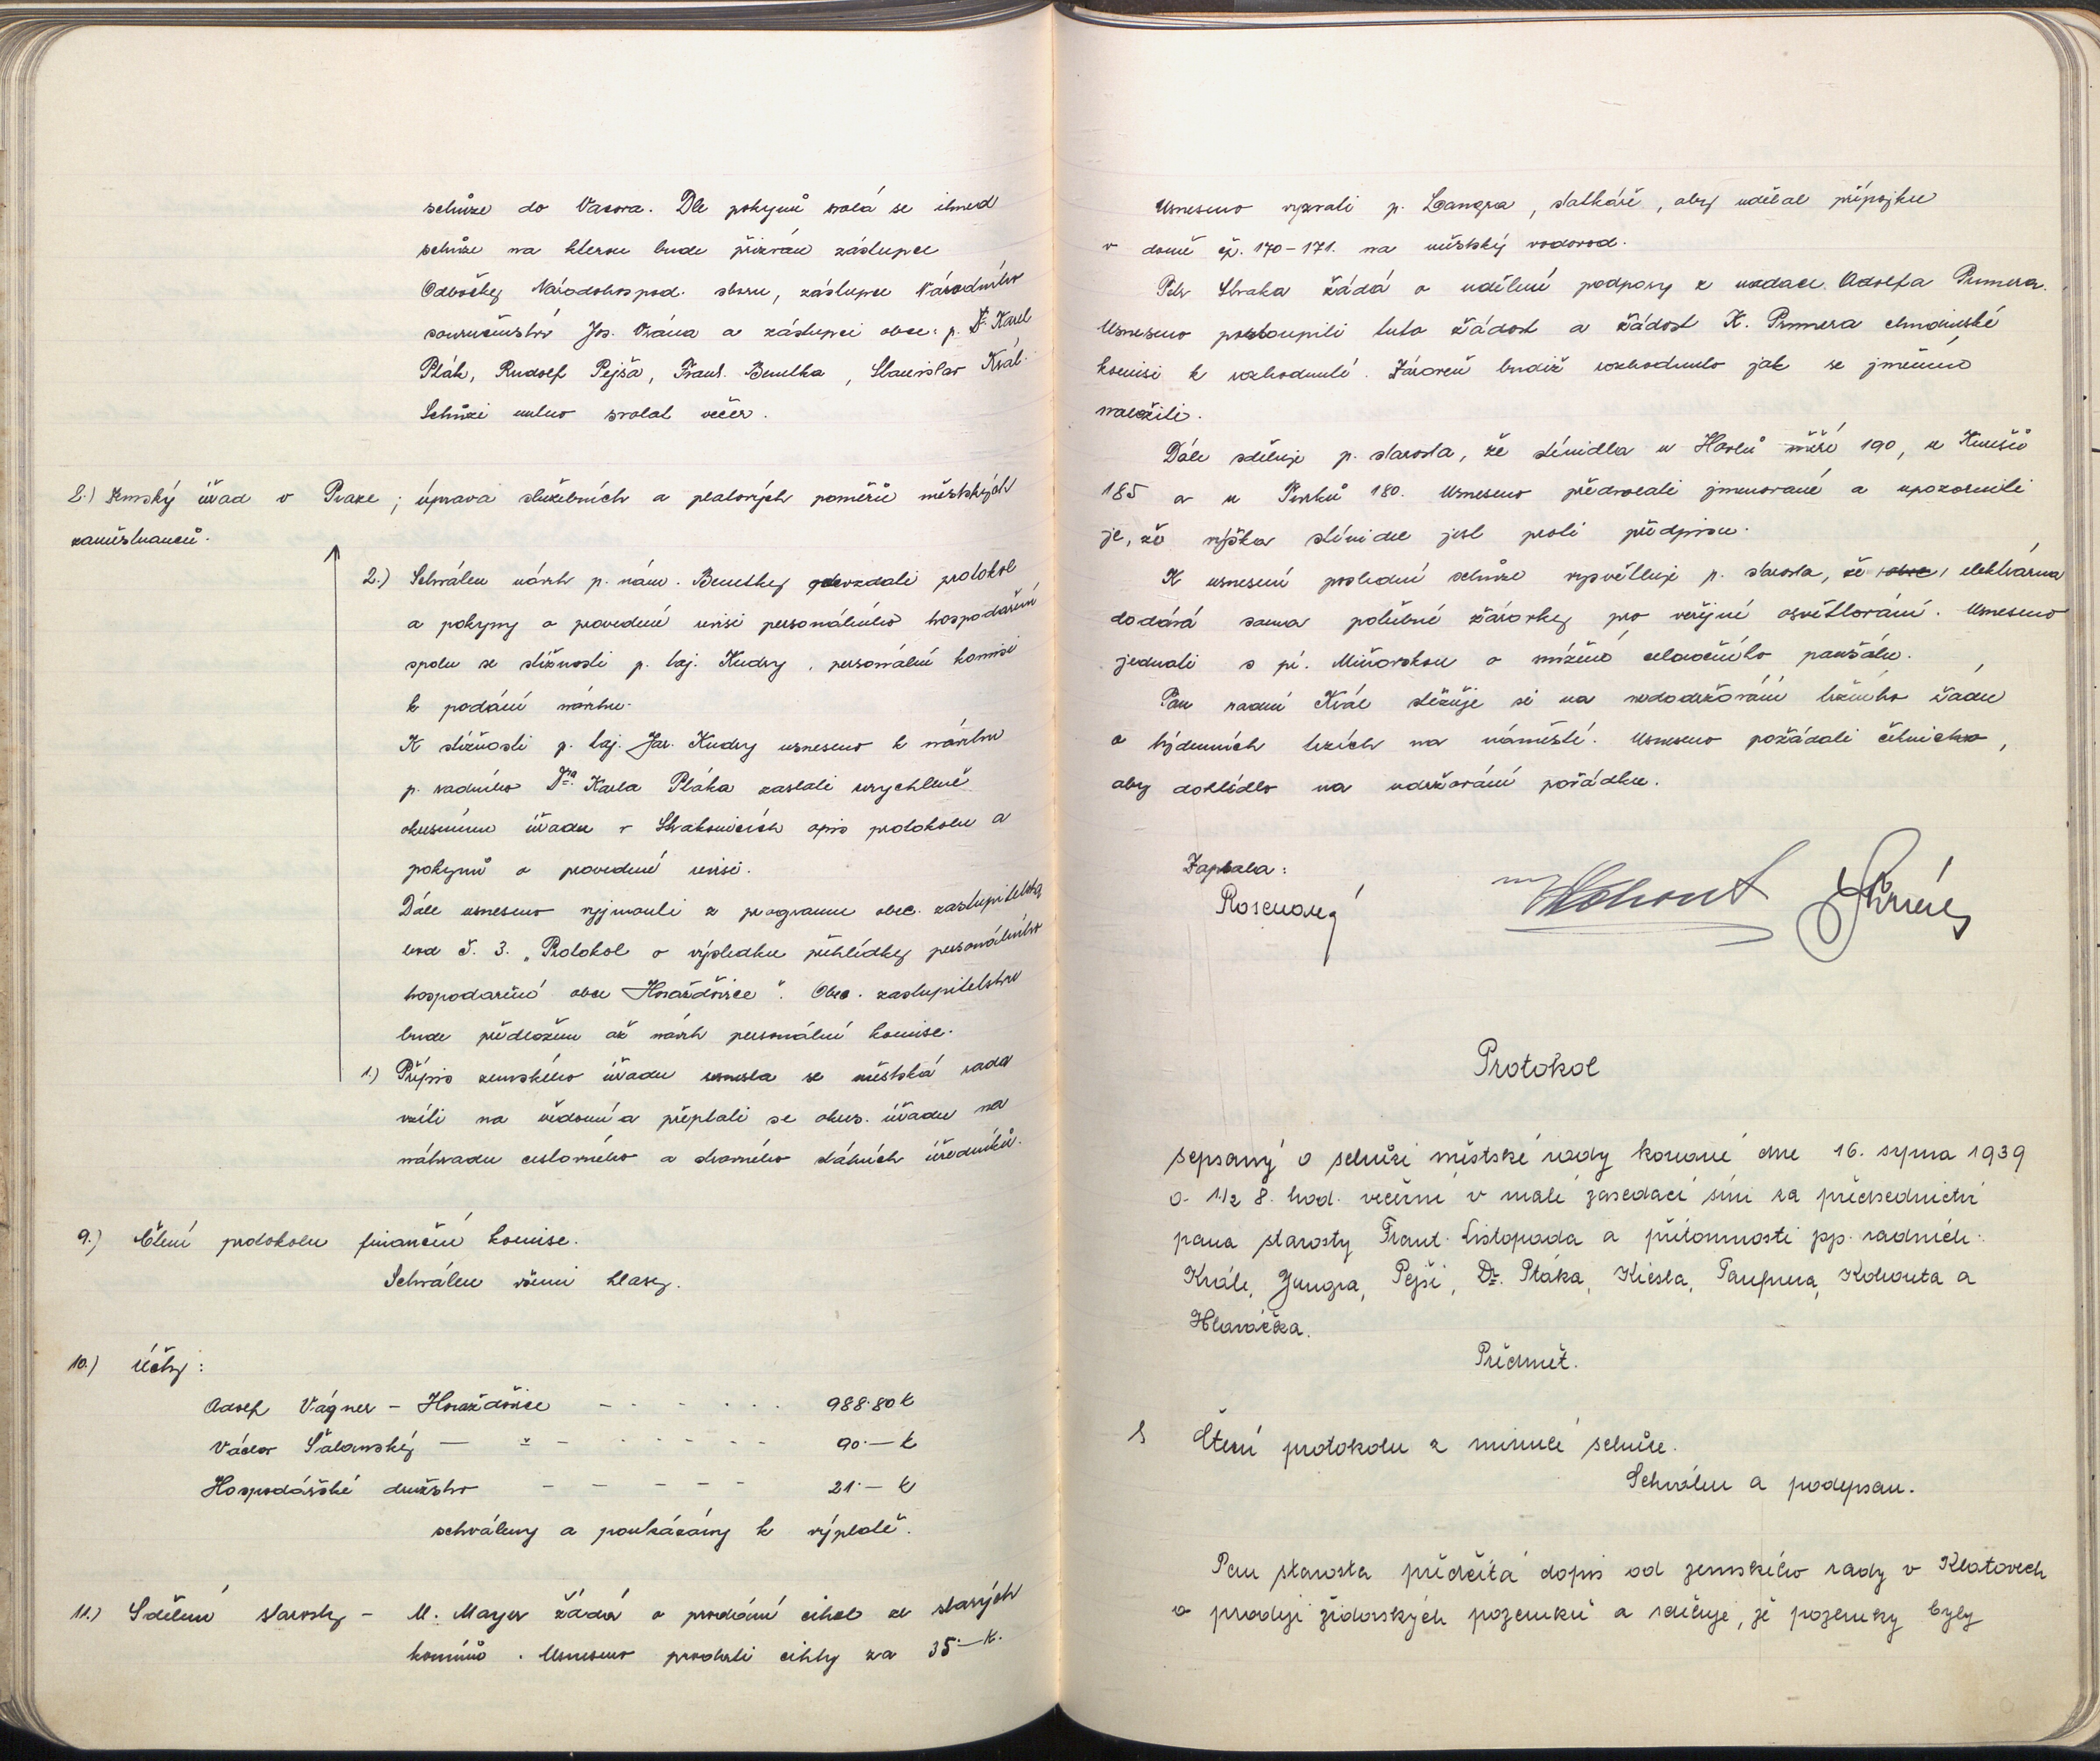 schůze do Vacova. Dle pokynů svolá se ihned
schůze na kterou bude přizván zástupce
Odbočky Národohospod. sboru, zástupce Národního
souručenství Jos. Vrána a zástupci obce: p. Dr. Karel
Pták, Rudolf Pejša, Frant. Benetka, Stanislav Král.
Schůzi nutno svolat večer.
8.) Zemský úřad v Praze; úprava služebních a platových poměrů městských
zaměstnanců.
2.) Schválen návrh p. nám. Benetky odevzdati protokol
a pokyny o provedené revisi personálního hospodaření
spolu se stížností p. taj. Kudry, personální komisi
k podání návrhu.
K stížnosti p. taj. Jar. Kudry usneseno k návrhu
p. radního Dra. Karla Ptáka zaslati urychleně
okresnímu úřadu v Strakonicích opis protokolu a
pokynů o provedené revisi.
Dále usneseno vyjmouti z programu obec. zastupitelstva
bod č. 3. „Protokol o výsledku přehlídky personálního
hospodaření obce Horažďovice". Obec. zastupitelstvu
bude předložen až návrh personální komise.
1.) Přípis zemského úřadu usnesla se městská rada
vzíti na vědomí a přeptati se okres. úřadu na
náhradu cestovného a stravného státních úředníků.
9.) Čtení protokolu finanční komise.
Schválen všemi hlasy.
10.) Účty:
Adolf Vágner - Horažďovice - - - - - - 988.80 K
Václav Šalanský - " - - - - - - 90.— K
Hospodářské družstvo - - - - - 21.— K
schváleny a poukázány k výplatě.
11.) Sdělení starosty - M. Mayer žádá o prodání cihel ze starých
komínů. Usneseno prodati cihly za 35.— K.
Usneseno vyzvati p. Langra, statkáře, aby udělal přípojku
v domě čp. 170-171. na městský vodovod.
Petr Straka žádá o udělení podpory z nadace Adolfa Prumera.
Usneseno postoupiti tuto žádost a žádost K. Prumera chudinské
komisi k rozhodnutí. Zároveň budiž rozhodnuto jak se jmění
naložiti.
Dále sděluje p. starosta, že stínidla u Havlů měří 190, u
185 a u 180. Usneseno předvolati jmenované a upozorniti
je, že výška stínidel jest proti předpisu.
K usnesení poslední schůze vysvětluje p. starosta, že elektrárna
dodává sama potřebné žárovky pro veřejné osvětlování. Usneseno
jednati s pí. Miňovskou o snížení celoročního paušálu.
Pan radní Král stěžuje si na nedodržování tržního řádu
o týdenních trzích na náměstí. Usneseno požádati četnictvo,
aby dohlídlo na udržování pořádku.
Zapsala:
Kohout
Protokol
sepsaný o schůzi městské rady konané dne 16. srpna 1939
o 1/2 8. hod. večerní v malé zasedací síni za předsednictví
pana starosty Frant. Listopada a přítomnosti pp. radních:
Krále, Jungra, Pejši, Dr. Ptáka, Kiesla, Kohouta a
Hlaváčka.
Předmět.
1 Čtení protokolu z minulé schůze.
Schválen a podepsan.
Pan starosta předčítá dopis od zemského rady v Klatovech
o prodeji židovských pozemků a sděluje, že pozemky byly